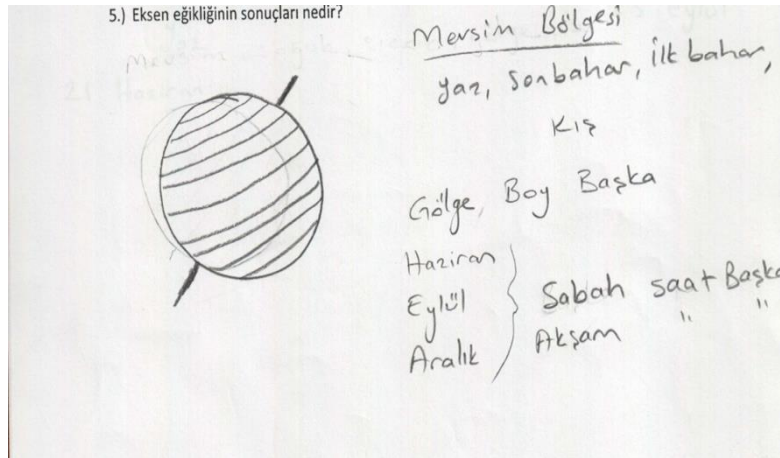 5.) Eksen eğikliğinin sonuçları nedir?
Mevsim Bölgesi
yaz, sonbahar, ilk bahar,
Kış
Gölge, Boy Başka
Haziran
Eylül
Aralık
Sabah saat Başka
Akşam " "